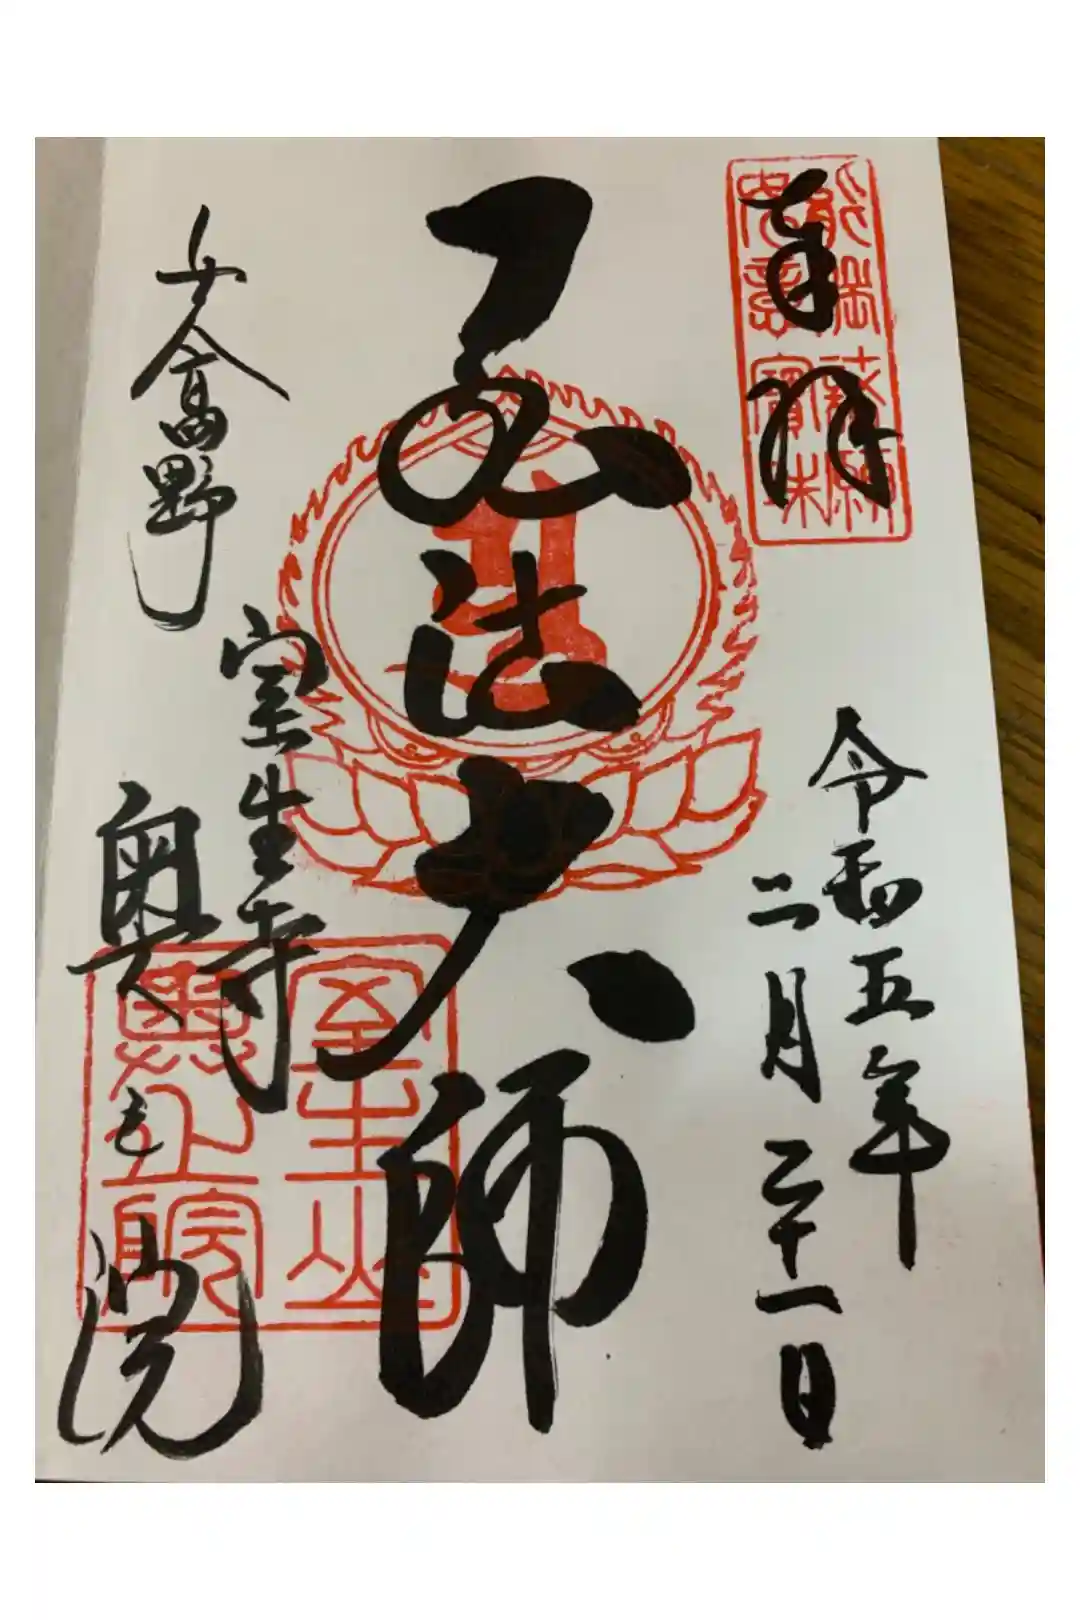 奉拝
令和五年
二月二十一日
弘法大師
女人高野
室生寺
奥之院
能満諸願
如意寶珠
室生山
奥之院